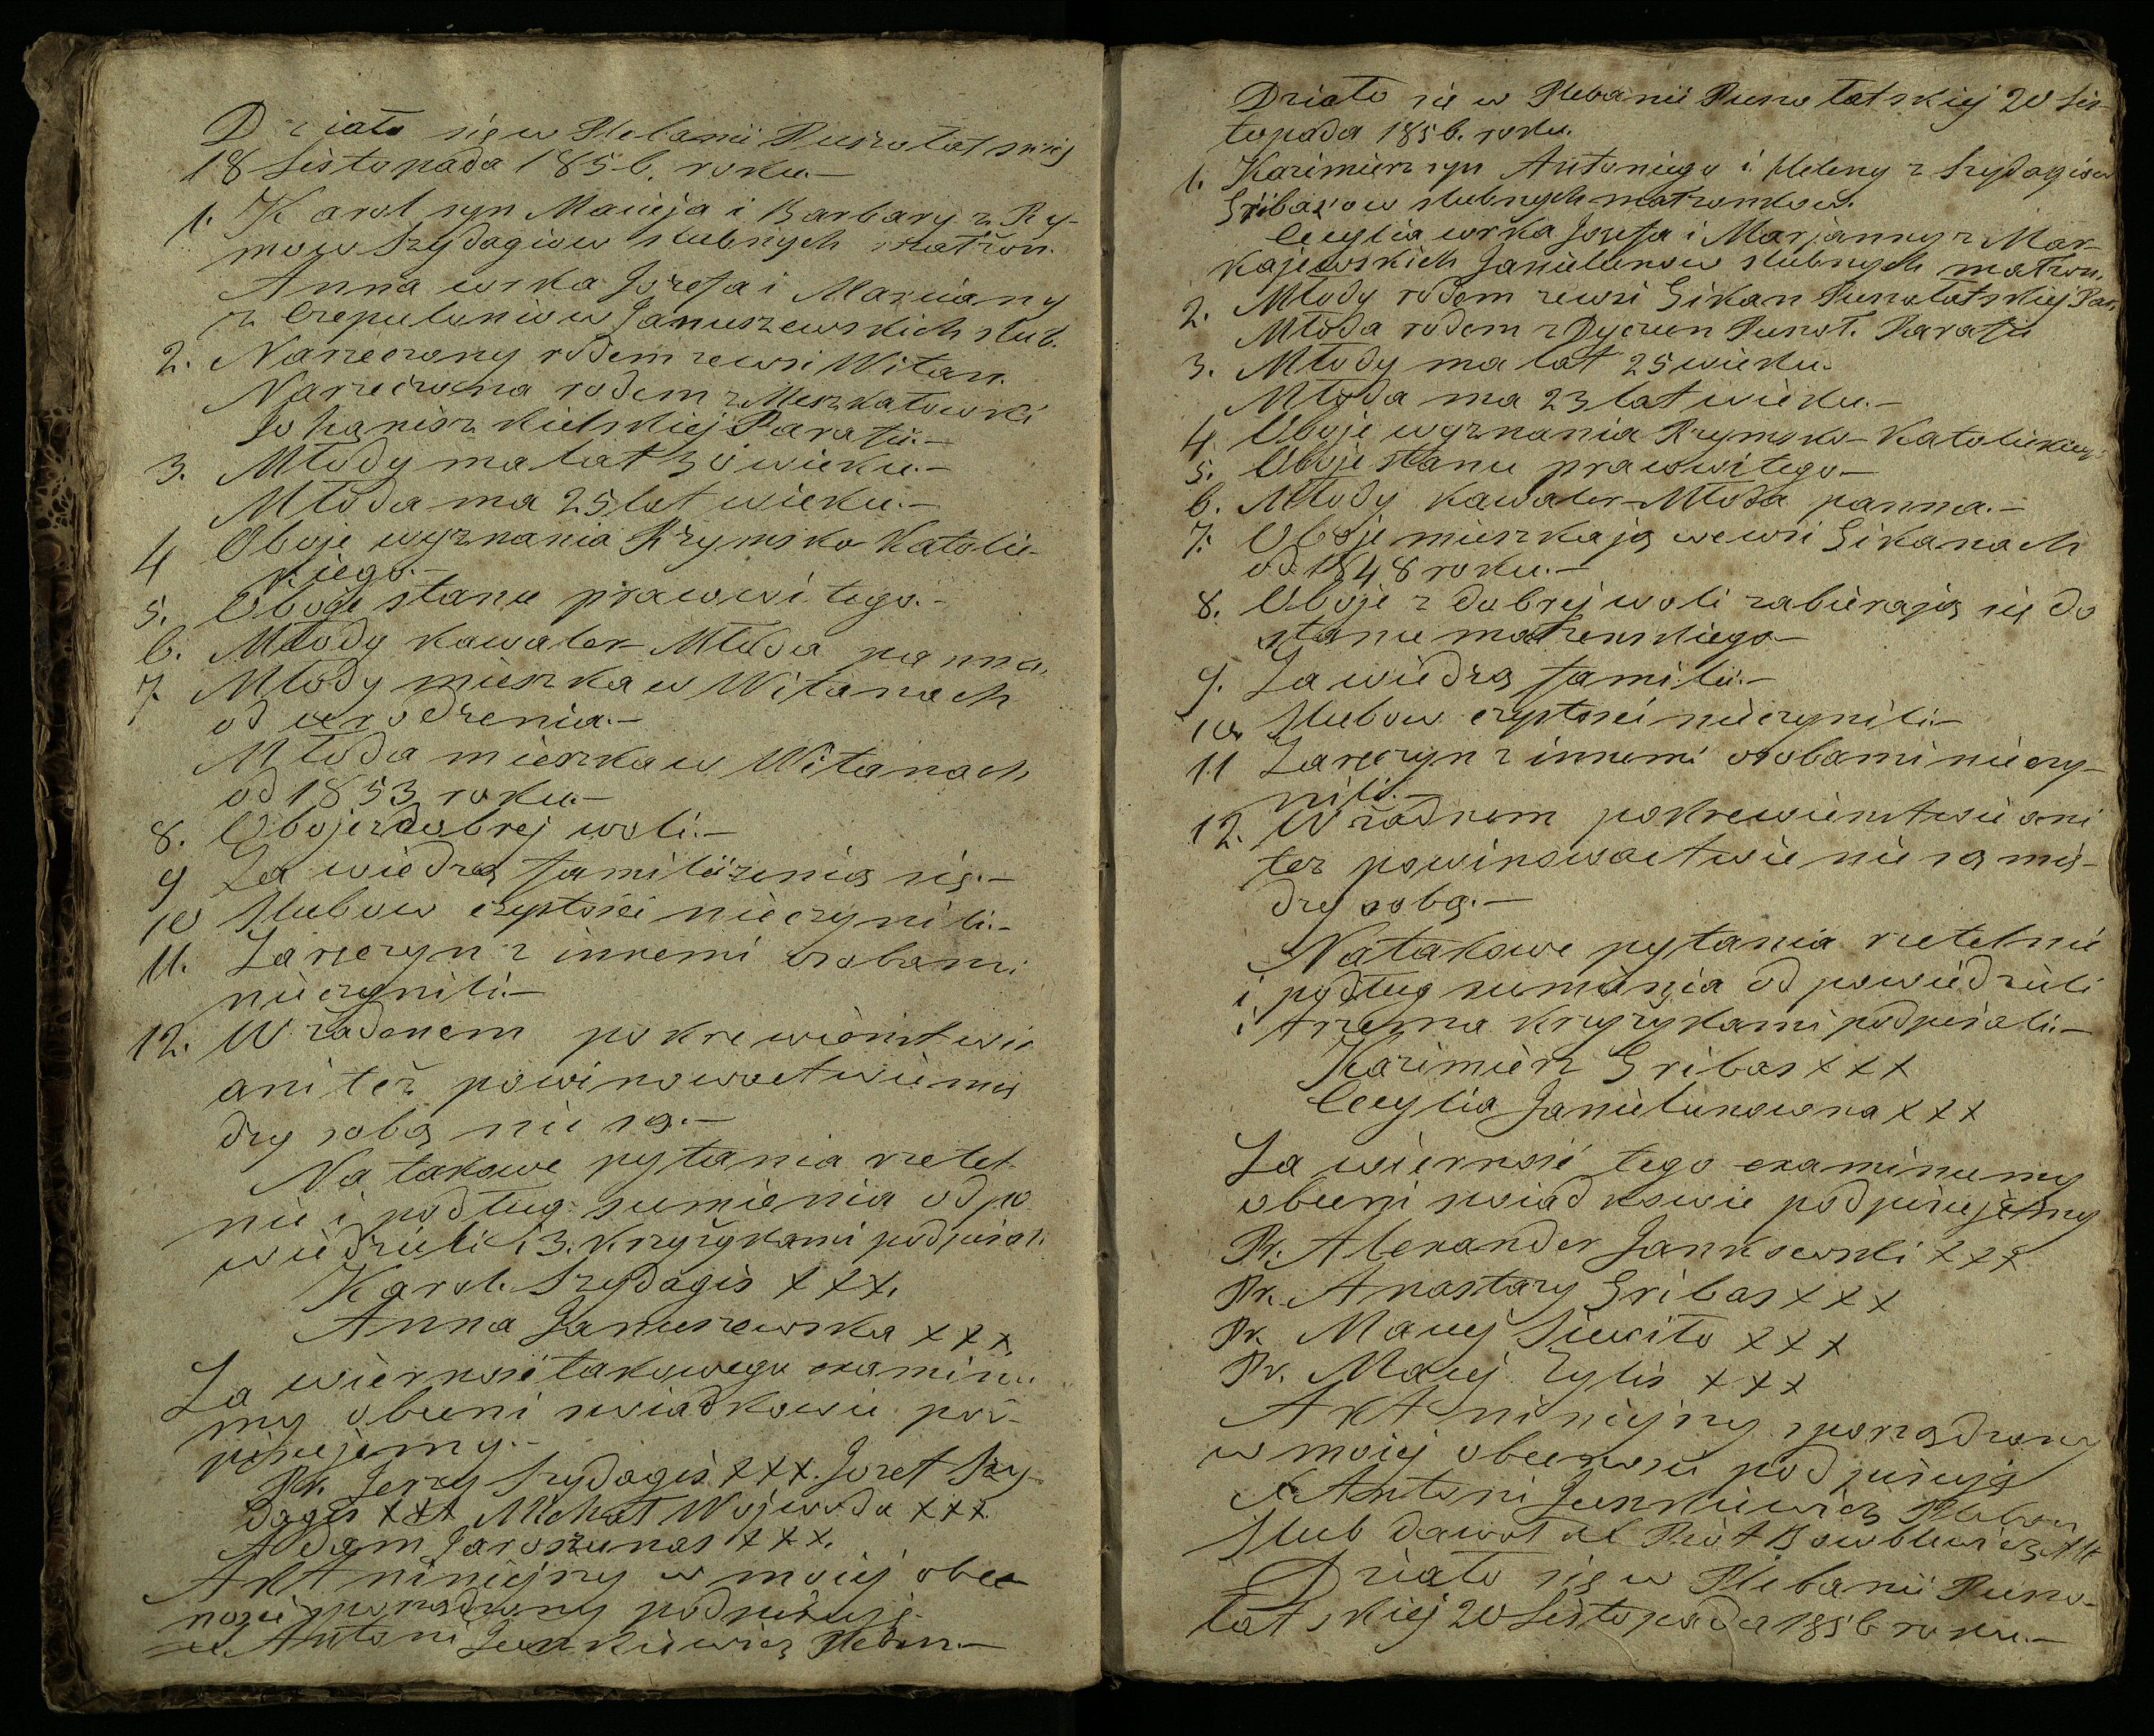 Działo się w Plebanii Puszołatskiej
18 Listopada 1856. roku.—
1. Karol syn Macieja i Barbary z Ry-
mow Szydagiow slubnych matżon.
Anna curka Jozefa i Maryiany
z Czepuloniow Januszewskich slub.
2. Narzeczony rodem zewsi Witan.
Narzeczona rodem z Meszkatowski
Johaniszkielskiej Parafii.—
3. Młody ma lat 30 wieku.—
Młoda ma 25 lat wieku.—
4 Oboje wyznania Rzymsko Katolic-
kiego.—
5. Oboje stanu prawowitego.—
6. Młody kawaler Młoda panna.
7. Młody mieszka w Witanach
od urodzenia.—
Młoda mieszka w Witanach
od 1853 roku.—
8. Oboje z dobrej woli.—
9 Za wiedzą familii żenią się.—
10 Slubow czystości nieczynili.—
11. Zaręczyn z innemi osobami
nieczynili.—
12. W żadenem pokrewienstwie
ani też powinowactwie mię
dzy sobą nie są.—
Na takowe pytania rzetel-
nie i podług sumienia odpo
wiedzieli i 3. krzyżykami podpisali.
Karol. Szydagis XXX.
Anna Januszewska XXX
Za wiernosć takowego examinu
my obecni swiadkowie pod-
pisujemy.—
Pr. Jerzy Szydagis XXX. Jozef Szy-
dagis XXX Michał Wojewoda XXX.
Adam Jaroszunas XXX.
Akt niniejszy w mojej obec
nosci sporządzony podpisuję.
X Antoni Junkiewicz Pleban.—
Działo się w Plebanii Puszołatskiej 20 Lis-
topada 1856. roku.
1. Kazimierz syn Antoniego i Heleny z Szydagisow
Gribasow slubnych matzonkow.
Cecylia curka Jozefa i Marjanny z Mar-
kajewskich Janielunow slubnych matzon.
2. Młody rodem zewsi Gikan Puszołatskiej Par.
Młoda rodem z Dyczun Puszoł. Parafii
3. Młody ma lat 25 wieku.
Młoda ma 23 lat wieku.—
4 Oboje wyznania Rzymsko-Katolickiego
5. Oboje stanu prawowitego—
6. Młody kawaler—Młoda panna.—
7. Oboje mieszkają wewsi Gikanach
od 1848 roku.—
8. Oboje z dobrej woli zabierają się do
stanu małżenskiego—
9. Za wiedzą familii.—
10. Slubow czystosci nieczynili—
11 Zaręczyn z innemi osobami nieczy-
nili.—
12. W żadnem pokrewienstwie ani
tez powinowactwie nie są mię-
dzy sobą.—
Natakowe pytania rzetelnie
i podług sumienia odpowiedzieli
i trzema krzyżykami podpisali.—
Kazimierz Gribas XXX
Cecylia Janielunowna XXX
Za wiernosć tego examinu my
obecni swiadkowie podpisujemy
Pr. Alexander Jankowski XXX
Pr. Anastazy Gribas XXX
Pr. Maciej XXX
Pr. Maciej Zylis XXX
Akt niniejszy sporządzony
w mojej obecnosci podpisuję
X Antoni Junkiewicz Pleban
Slub dawał X Piot
Działo się w Plebanii Puszo-
łatskiej 20 Listopada 1856 roku.—